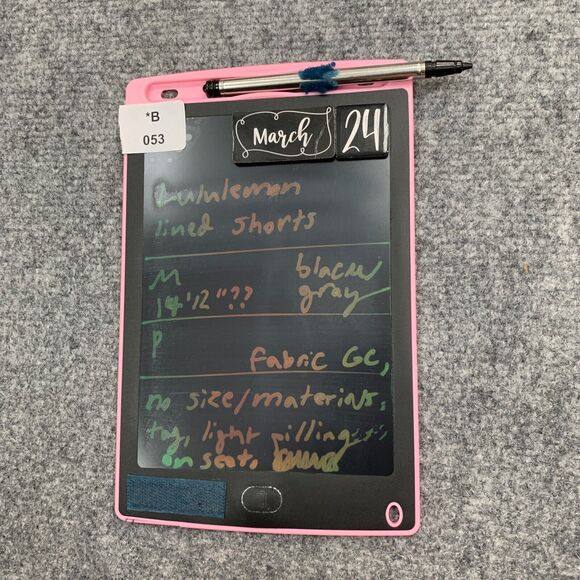 *B
053
March 24
Lululemon
lined shorts
M black
14'12"?? gray
P
fabric GC,
no size/materials,
tag, light pilling
on seat,